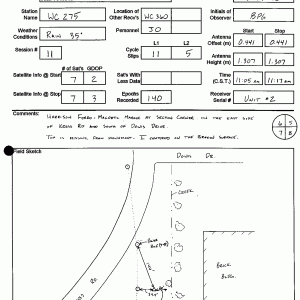 Station Name WC 275
Location of Other Recv's WC 360
Initials of Observer BPG
Weather Conditions Rain 35°
Personnel JO
Start Stop
Antenna Offset (m) 0.441 0.441
L1 L2
Session # 11
Cycle Slips 11 5
Antenna Height (m) 1.307 1.307
# of Sat's GDOP
Satellite Info @ Start 7 2
Sat's With Less Data
Time (C.S.T.) 11:05 AM 11:17 AM
Satellite Info @ Stop 7 3
Epochs Recorded 140
Receiver Serial # Unit #2
Comments: Harrison Ferro-Magnetic Marker at Section Corner, in the east side
of Kerns Rd and South of Downs Drive.
Top is missing from monument. I centered on the broken surface.
6 5
7 8
Field Sketch
Downs Dr
Creek
Rd
Brick
Bldg.